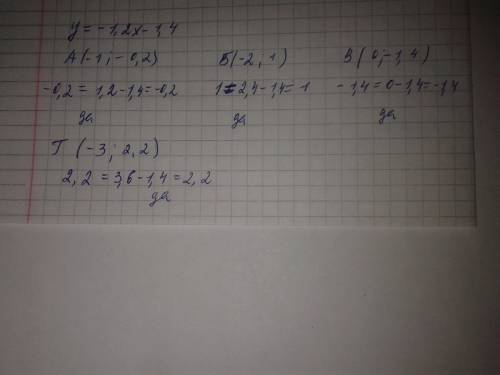 у = -1,2х - 1,4
А(-1; -0,2)
Б(-2; 1)
В(0; -1,4)
-0,2 = 1,2 - 1,4 = -0,2
1 = 2,4 - 1,4 = 1
-1,4 = 0 - 1,4 = -1,4
да
да
да
Г (-3; 2,2)
2,2 = 3,6 - 1,4 = 2,2
да